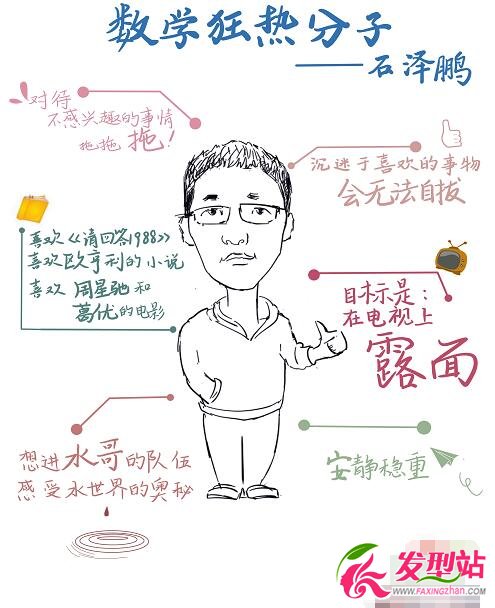 数学狂热分子
——石泽鹏
对待
不感兴趣的事情
拖拖拖!
沉迷于喜欢的事物
会无法自拔
喜欢《请回答1988》
喜欢欧亨利的小说
喜欢周星驰和
葛优的电影
目标是:
在电视上
露面
想进水哥的队伍
感受水世界的奥秘
安静稳重
发型站
WWW.FAXINGZHAN.COM